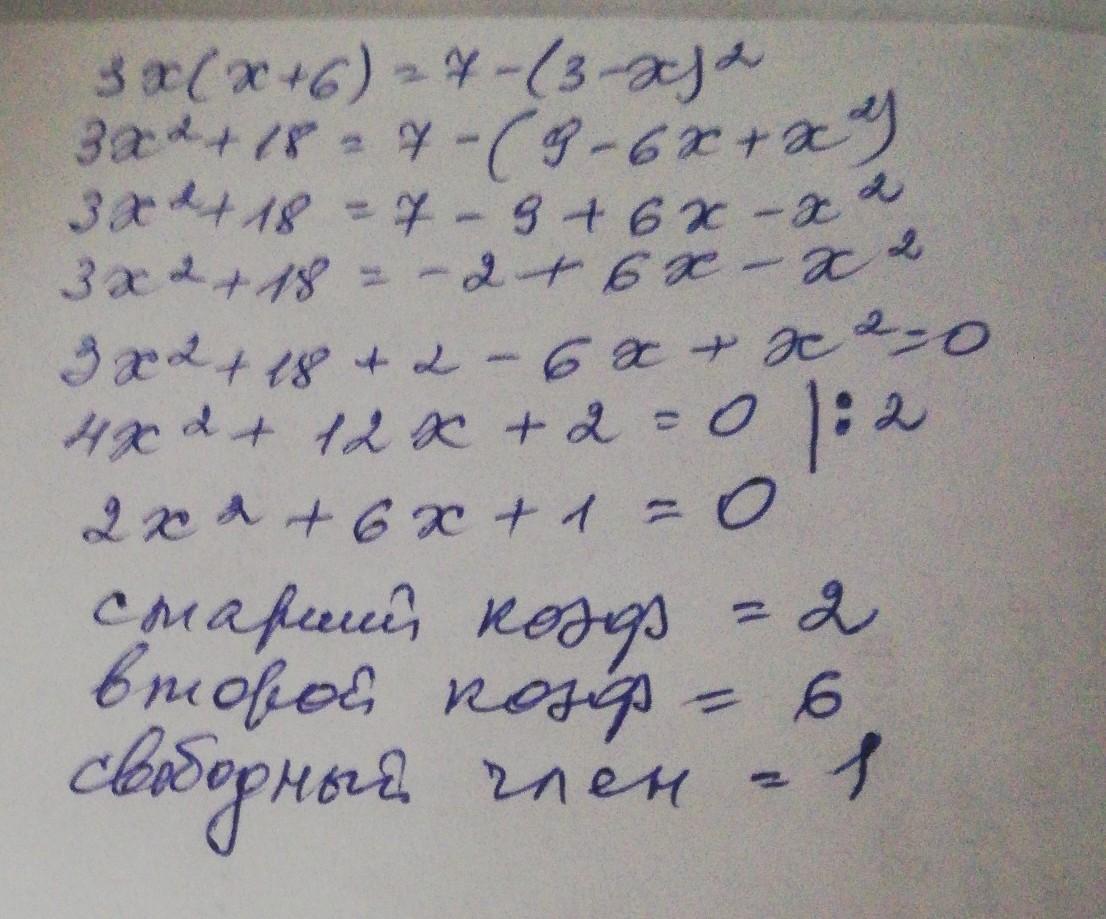 3x(x+6) = 7-(3-x)²
3x²+18 = 7-(9-6x+x²)
3x²+18 = 7-9+6x-x²
3x²+18 = -2+6x-x²
3x²+18+2-6x+x²=0
4x²+12x+2=0 |:2
2x²+6x+1=0
старший коэф = 2
второй коэф = 6
свободный член = 1